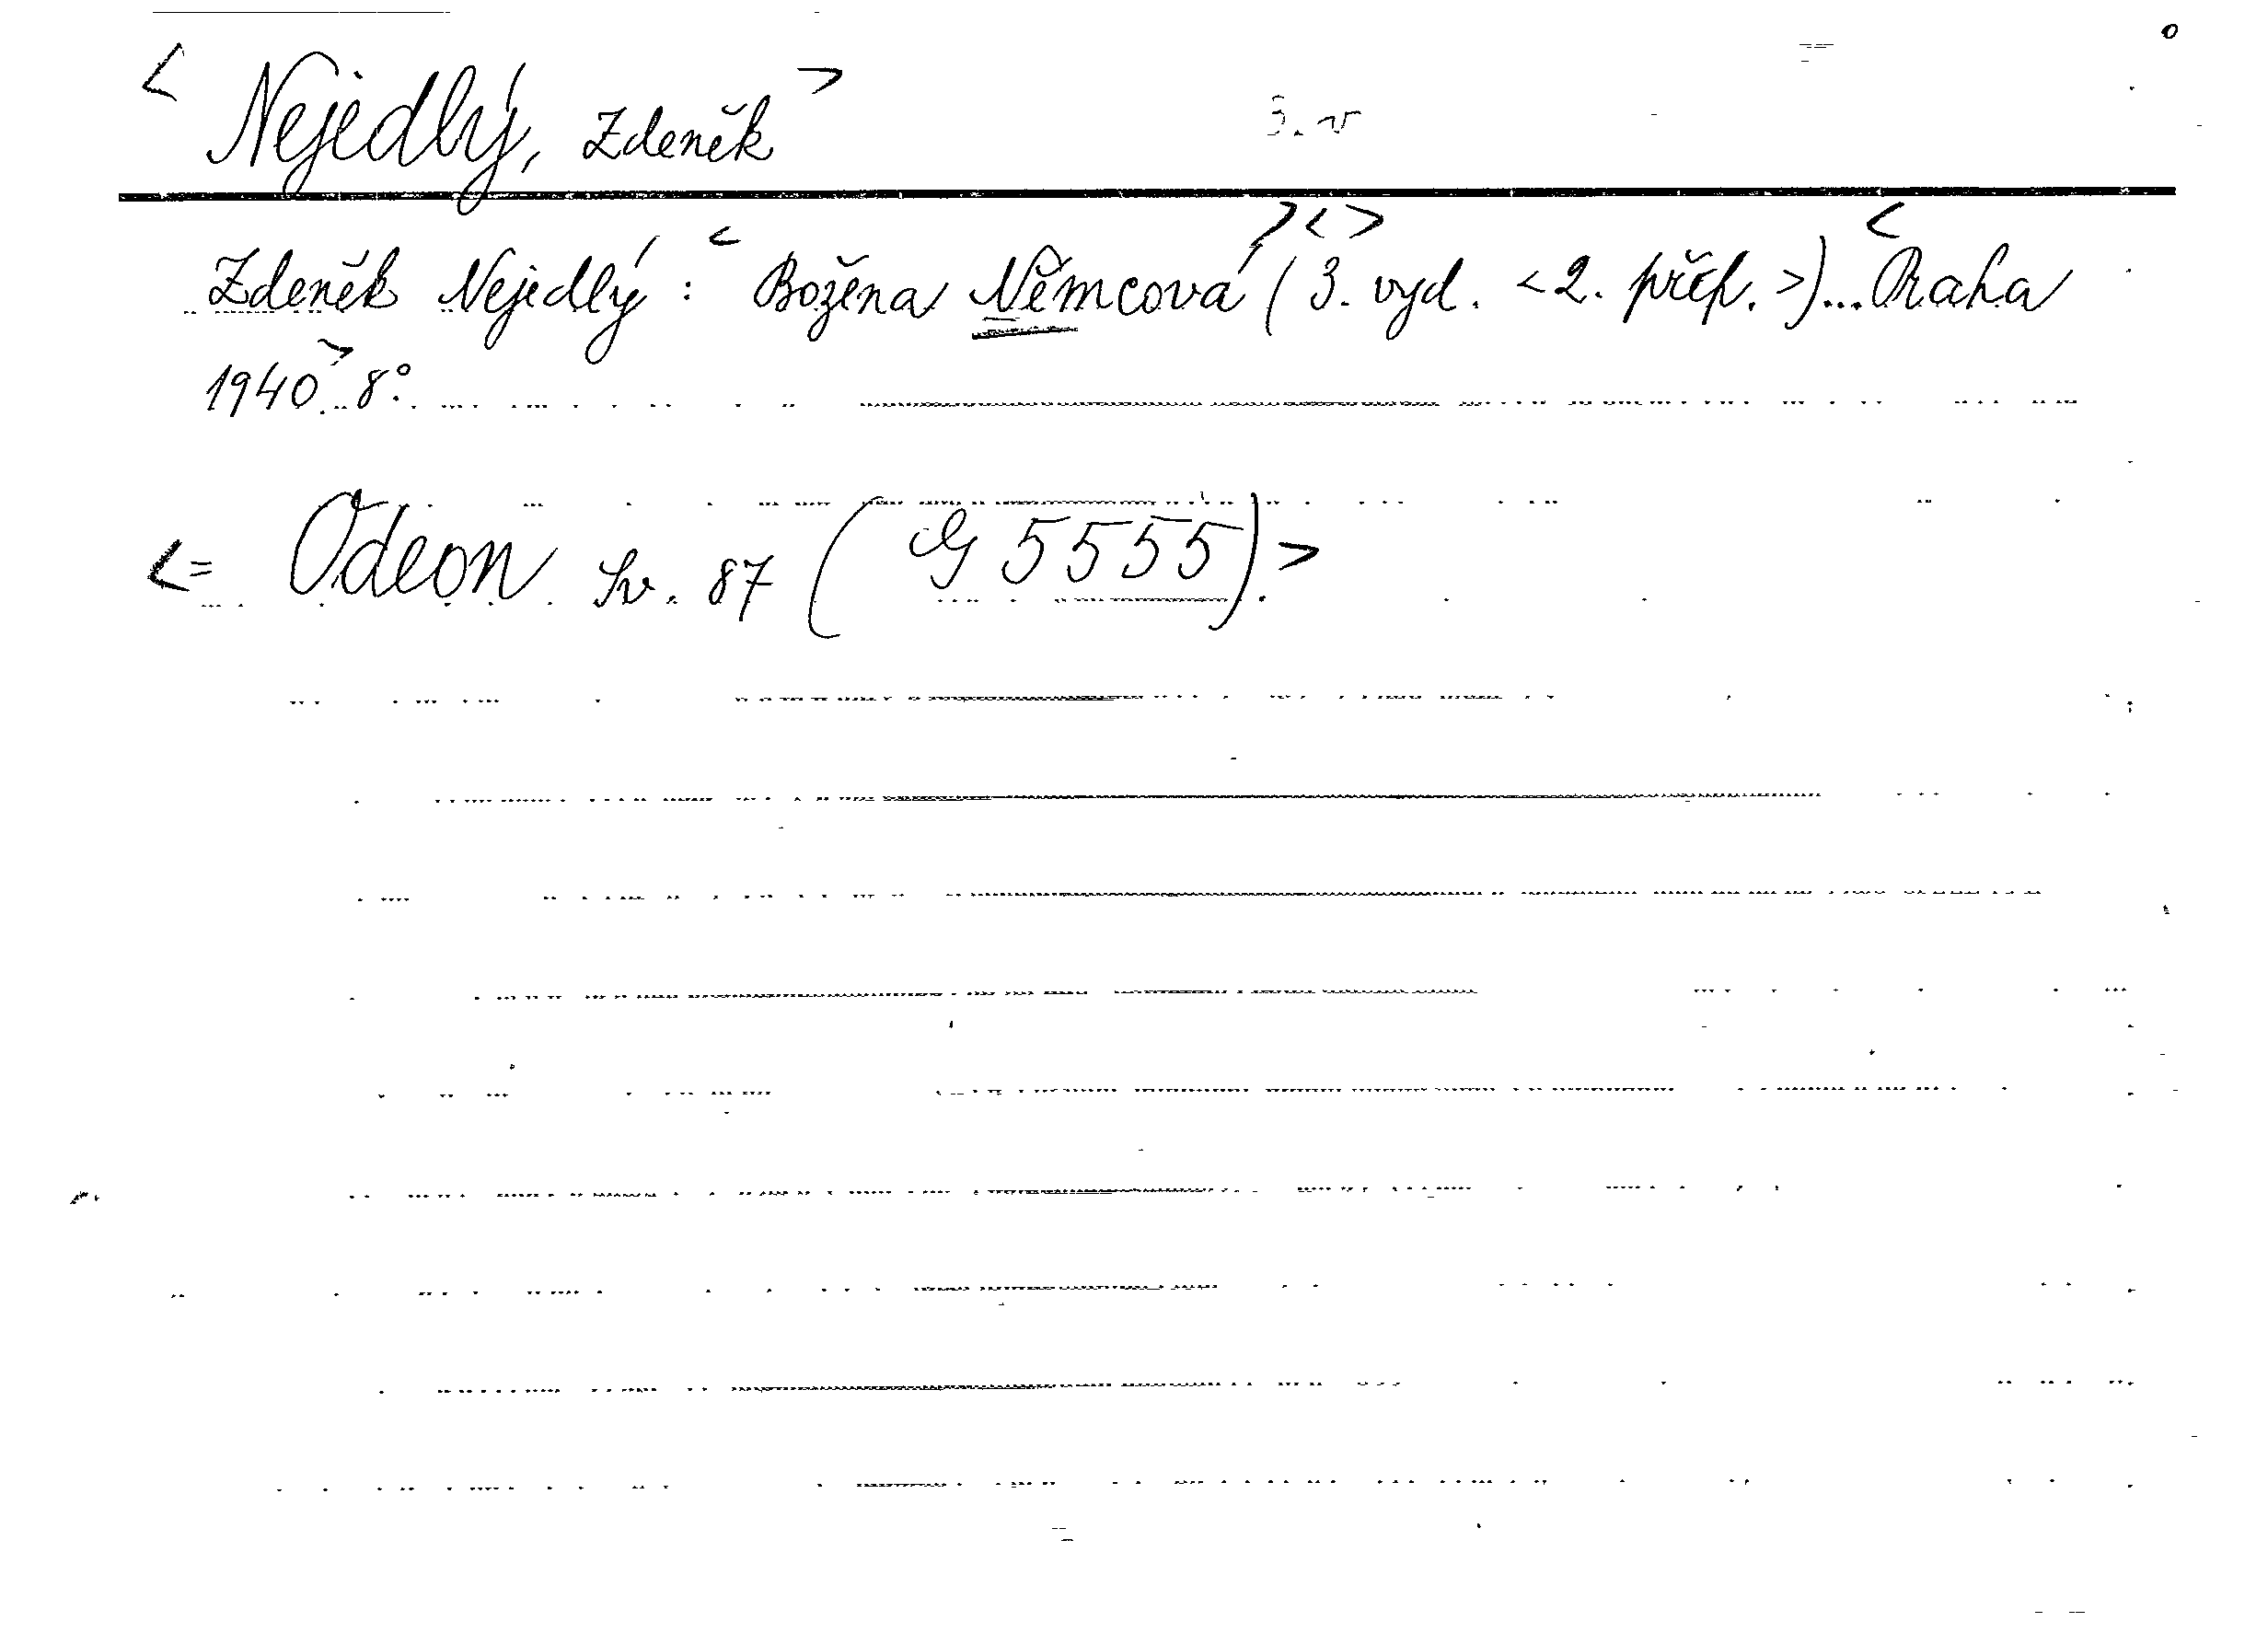 < Nejedlý, Zdeněk >
3. v
Zdeněk Nejedlý: < Božena Němcová > < (3. vyd. > <2. přep.>)... < Praha
1940 > 8°.
<= Odeon Sv. 87 (G 5555). >